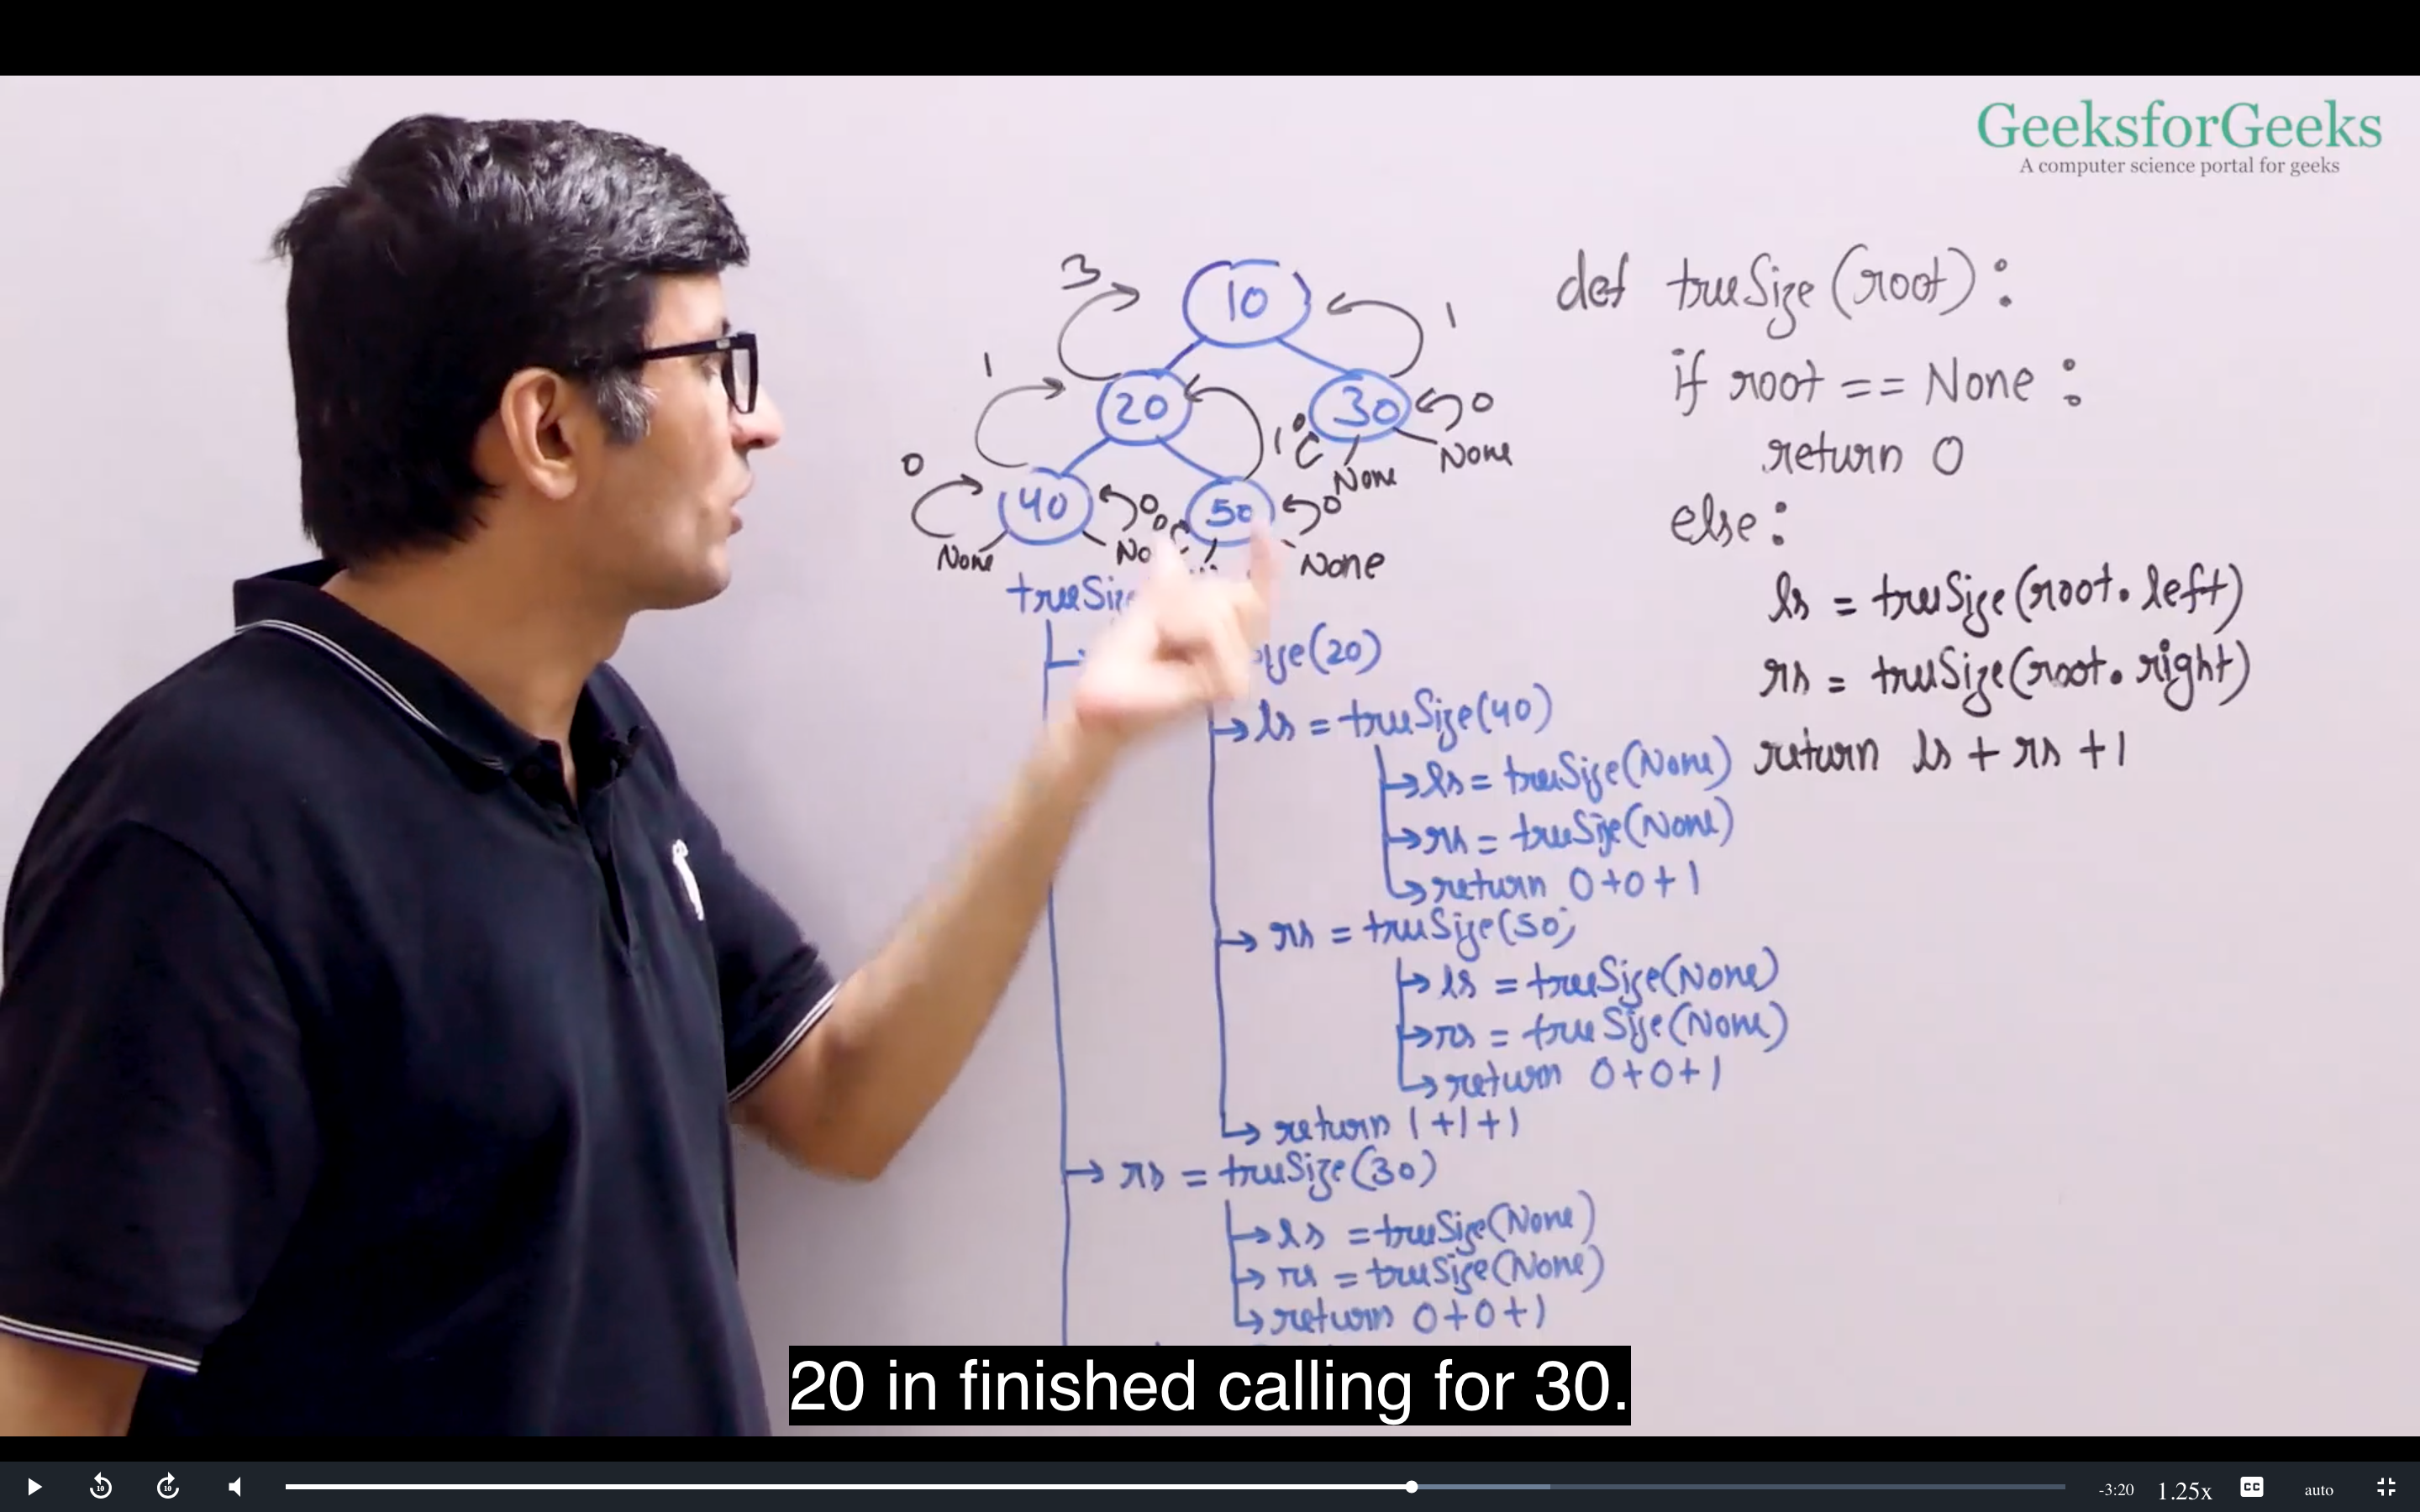 GeeksforGeeks
A computer science portal for geeks
3
10
1
1
20
30
0
1
0
None
None
0
40
0
0
50
0
None
None
def treeSize(root):
if root == None:
return 0
else:
ls = treeSize(root.left)
rs = treeSize(root.right)
return ls + rs + 1
(20)
ls = treeSize(40)
ls = treeSize(None)
rs = treeSize(None)
return 0+0+1
rs = treeSize(50)
ls = treeSize(None)
rs = treeSize(None)
return 0+0+1
return 1+1+1
rs = treeSize(30)
ls = treeSize(None)
rs = treeSize(None)
return 0+0+1
20 in finished calling for 30.
10
10
-3:20
1.25x
CC
auto